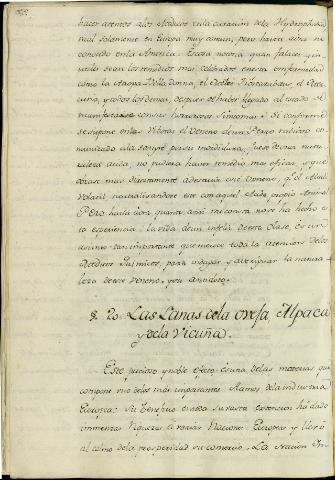 hacer atentos a los Medicos en la curacion de la Hydrophobia,
mal solamente en Europa muy comun, pero hasta ahora no
conocido en la America. Es cosa notoria quan falaces y in-
utiles sean los remedios mas celebrados en esta enfermedad
como la Atropa Belladonna, el
curio, y todos los demas, despues de haber llegado al grado de
manifestarse con sus furiosos Sintomas. Si conforme
se supone en las Viboras el Veneno de un Perro rabioso co-
municado a la sangre por su mordidura, fuese de una natu-
raleza acida, no pudiera haber remedio mas eficaz, y que
obrase mas directamente a destruir este Veneno, q.e el Alcali
Volatil, neutralisandose este con aquel Acido propio Animal
Pero hasta ahora quanto aqui me consta no se ha hecho es-
ta experiencia: la vida de un infeliz de esta clase, es un
asunto tan importante que merece toda la atencion de los
Medicos Quimicos, para indagar y averiguar la natura-
leza de este Veneno, y su antidoto.
§. 20. Las Lanas de la oveja, Alpaca
y de la Vicuña.
Este precioso y noble efecto es una de las materias que
compone uno de los mas importantes Ramos de la industria
Europea: Su Beneficio en toda su vasta extencion ha dado
inmensas riquezas a varias Naciones Europeas y llevó
al colmo de la prosperidad su comercio. La Nacion In-